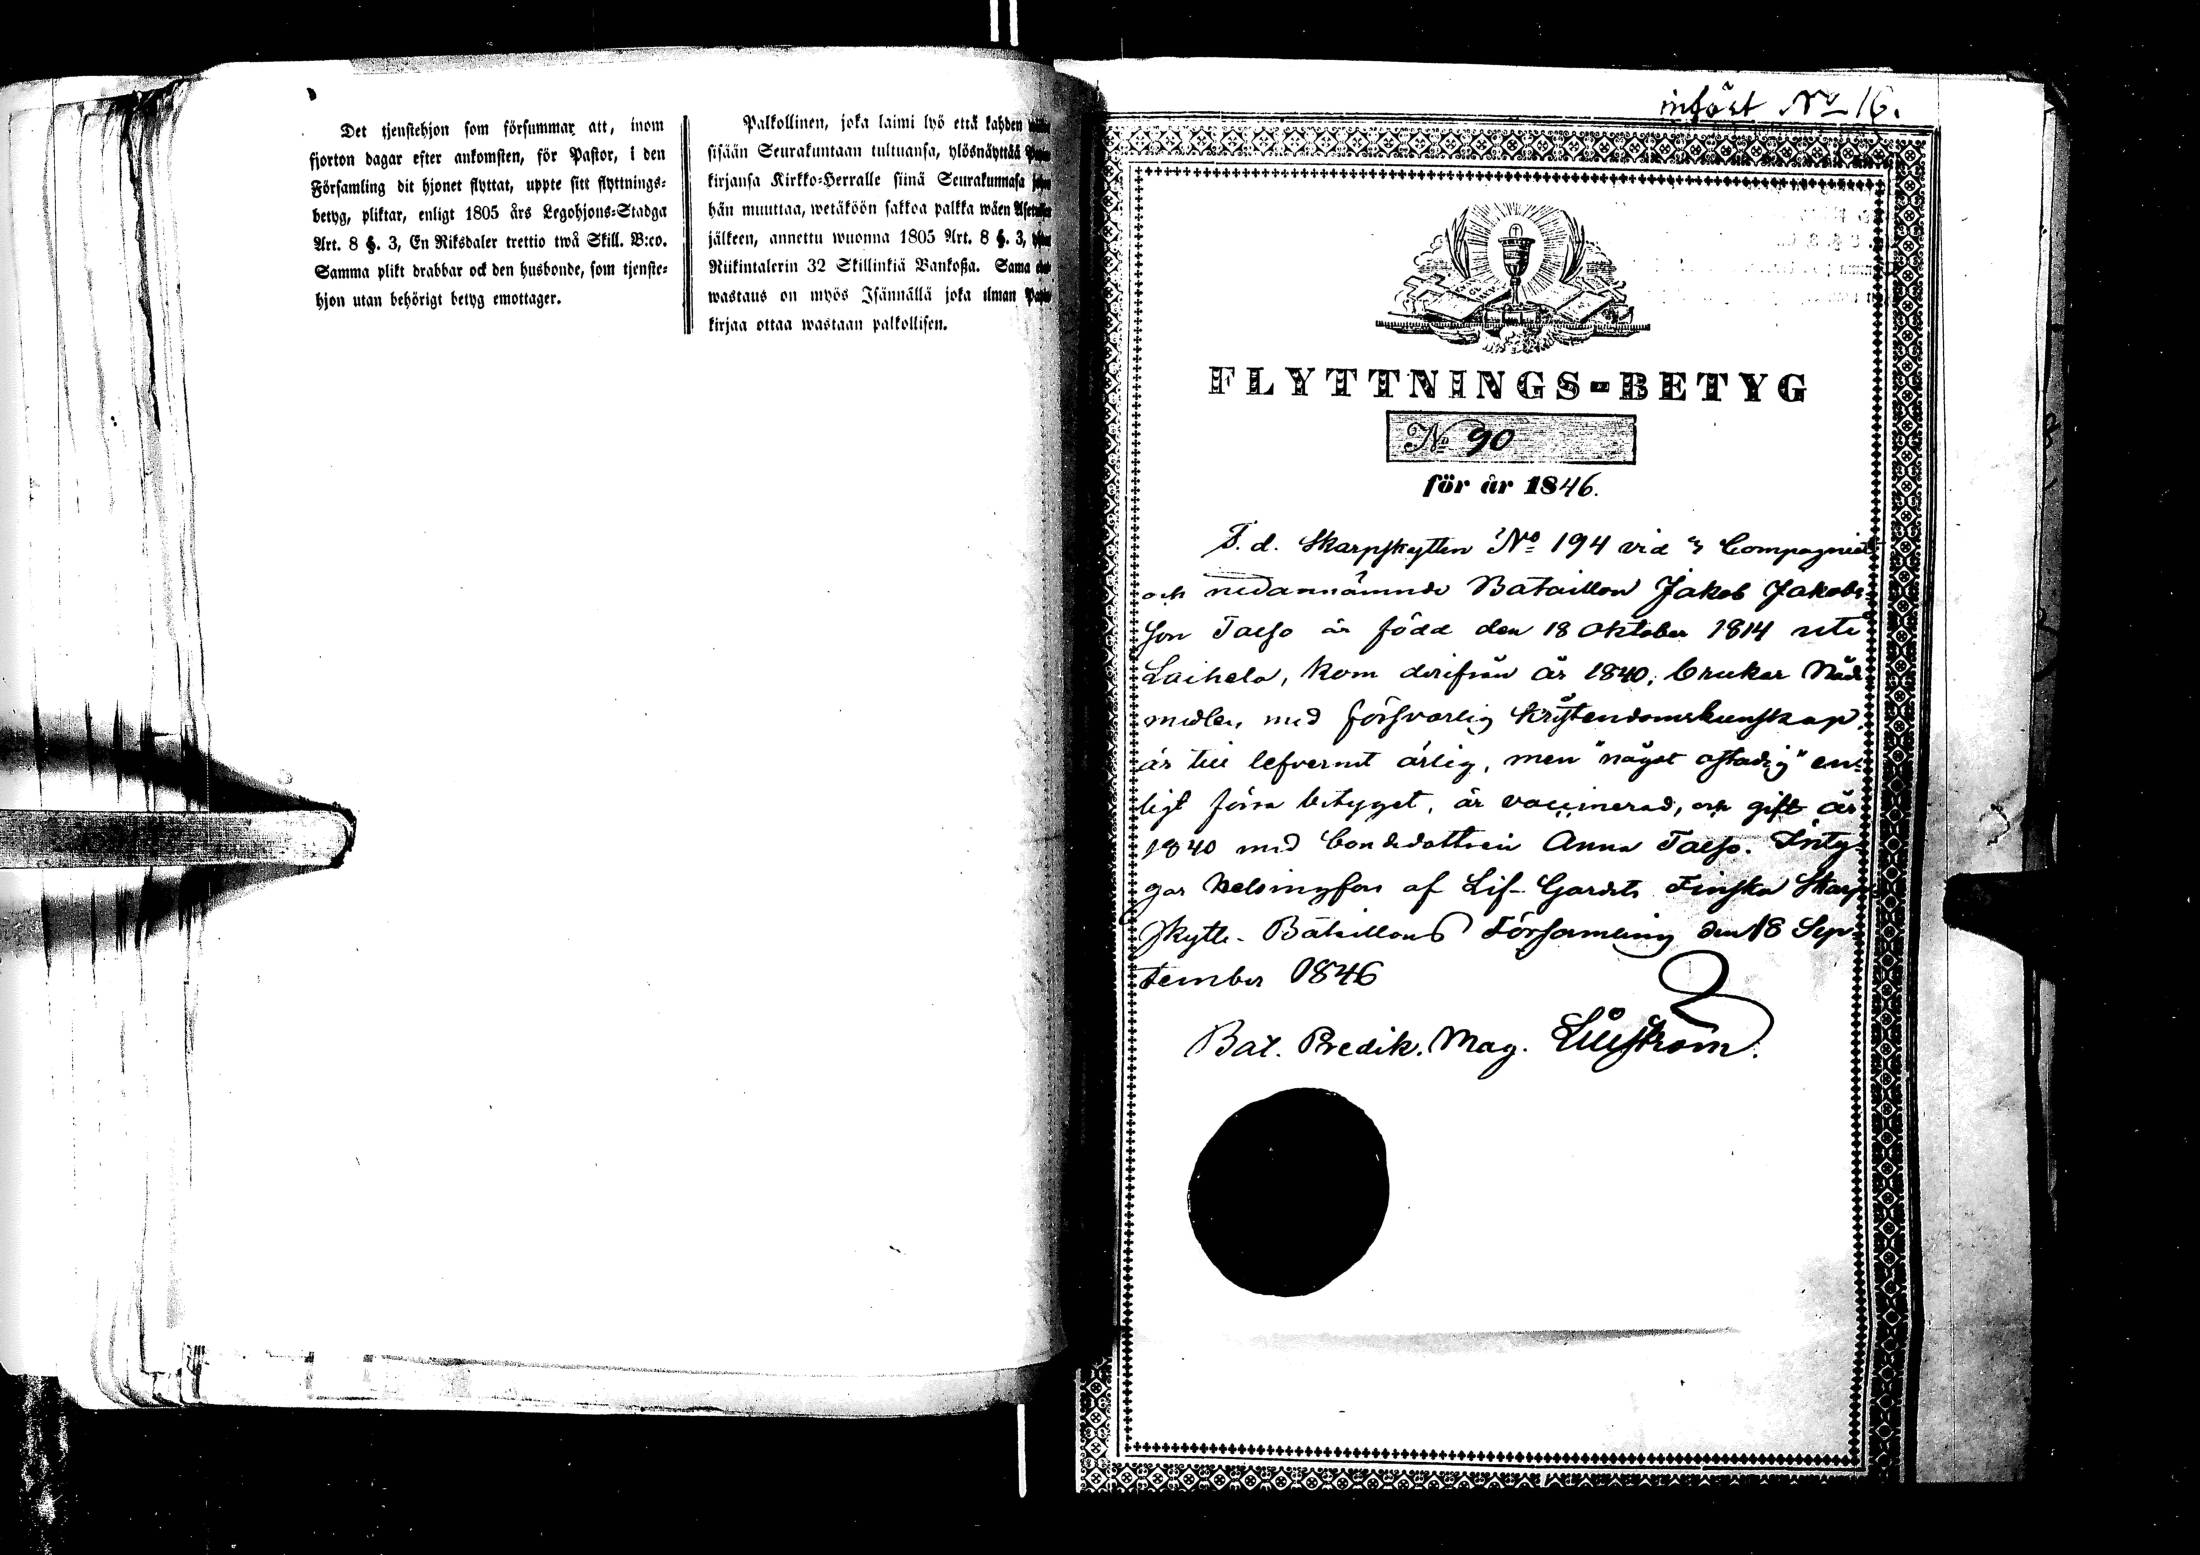 Det tjenstehjon som försummar att, inom
fjorton dagar efter ankomsten, för Pastor, i den
Församling dit hjonet flyttat, uppte sitt flyttnings-
betyg, pliktar, enligt 1805 års Legohjons-Stadga
Art. 8 §. 3, En Riksdaler trettio twå Skill. B:co.
Samma plikt drabbar ock den husbonde, som tjenste-
hjon utan behörigt betyg emottager.
Palkollinen, joka laimi lyö että kahden
sisään Seurakuntaan tultuansa, ylösnäyttää
kirjansa Kirkko-Herralle siinä Seurakunnasa
hän muuttaa, wetäköön sakkoa palkka wäen
jälkeen, annettu wuonna 1805 Art. 8 §. 3,
Riikintalerin 32 Skillinkiä Bankoßa. Sama
wastaus on myös Isännällä joka ilman
kirjaa ottaa wastaan palkollisen.
infört No 16.
FLYTTNINGS-BETYG
No 90
för år 1846.
F. d. Skarpskytten No 194 vid Compagniet
och nedannämnde Bataillon Jakob Jakobs-
son Talso är född den 18 Oktober 1814 uti
Laihela, kom derifrån år 1840; brukar Nåde
medlen med försvarlig kristendomskunskap,
är till lefvernet ärlig, men "något ostadig" en-
ligt förra betyget, är vaccinerad, och gift år
1840 med bondedottren Anna Talso. Inty-
gar Helsingfors af Lif-Gardets Finska Skarp
skytte-Bataillons Församling den 18 Sep-
tember 1846
Bat. Predik. Mag. Liljström.